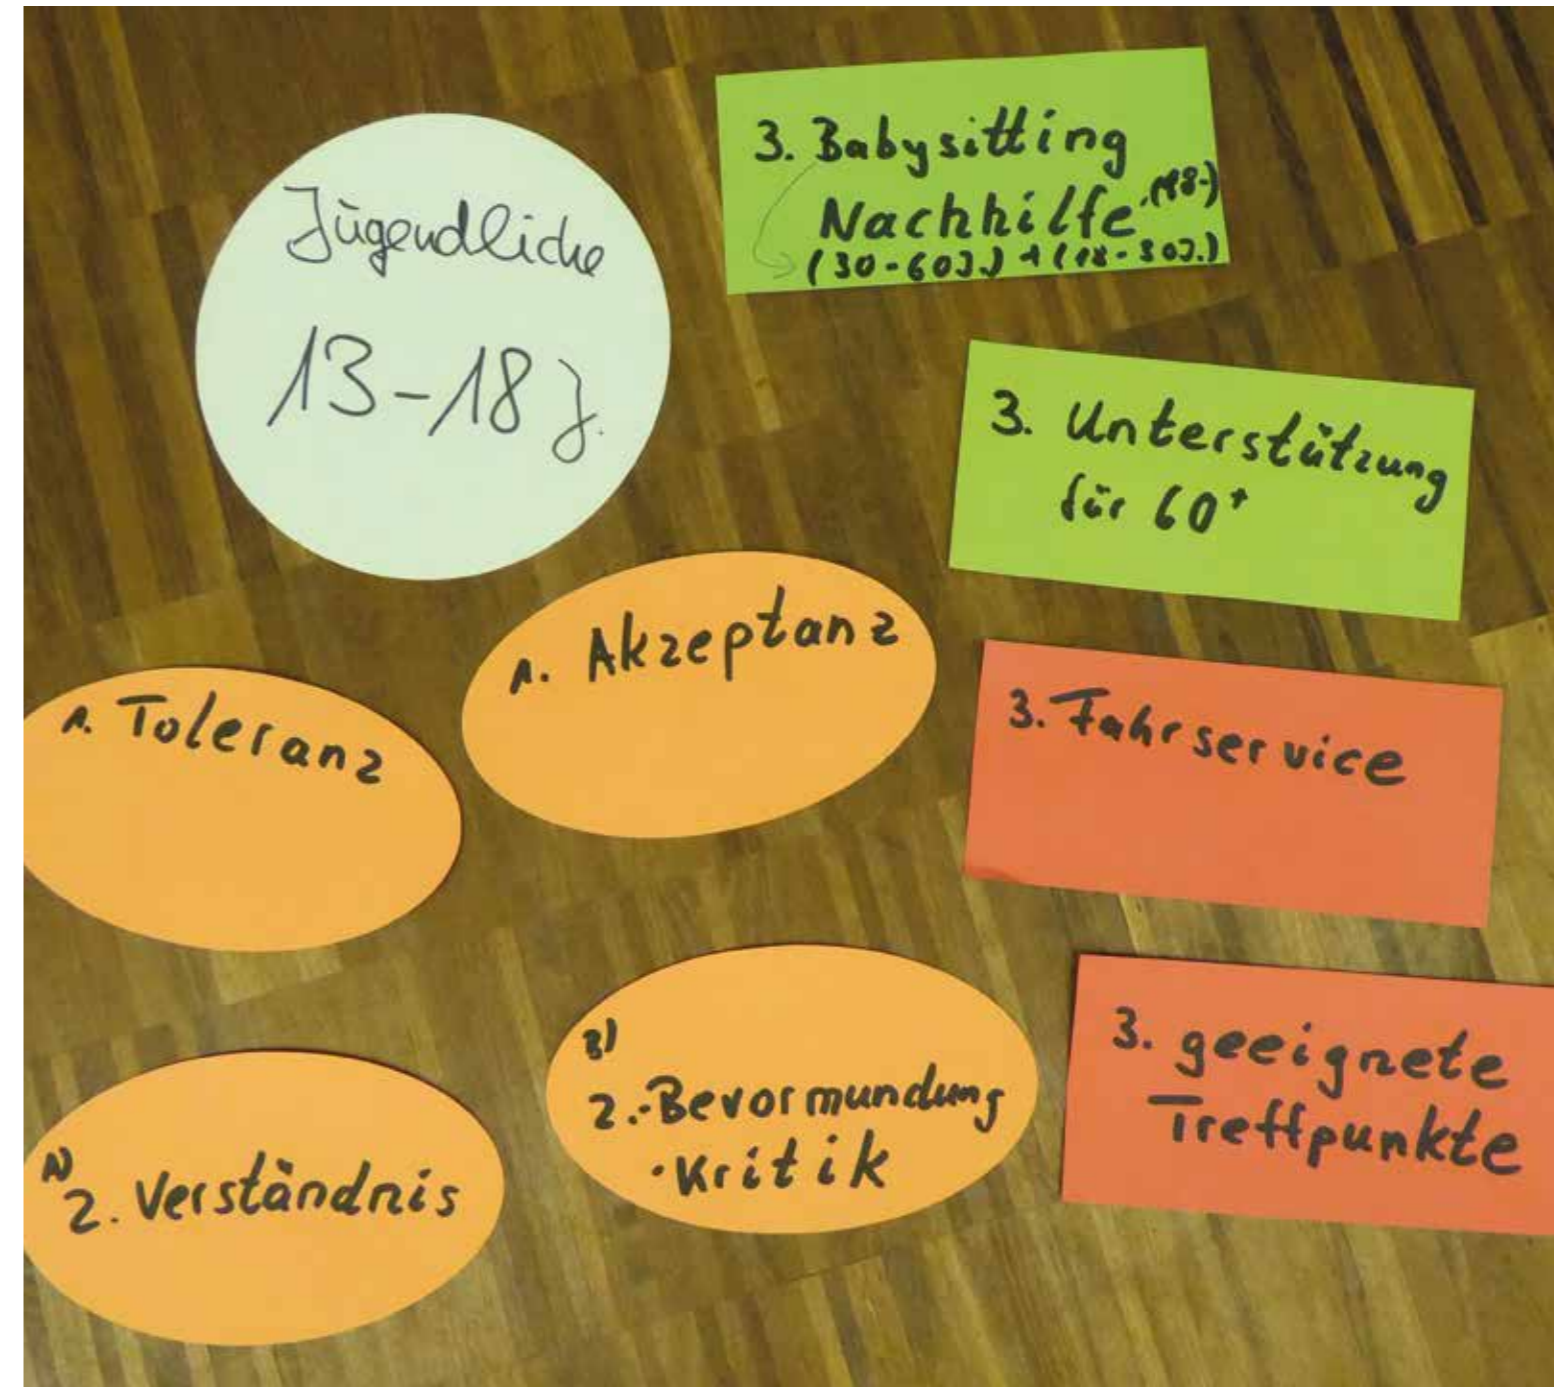 Jugendliche
13-18 J.
3. Babysitting
Nachhilfe
(30-60J.) + (18-30J.)
3. Unterstützung
für 60+
1. Akzeptanz
1. Toleranz
3. Fahrservice
B)
2.·Bevormundung
·Kritik
3. geeignete
Treffpunkte
A)
2. Verständnis